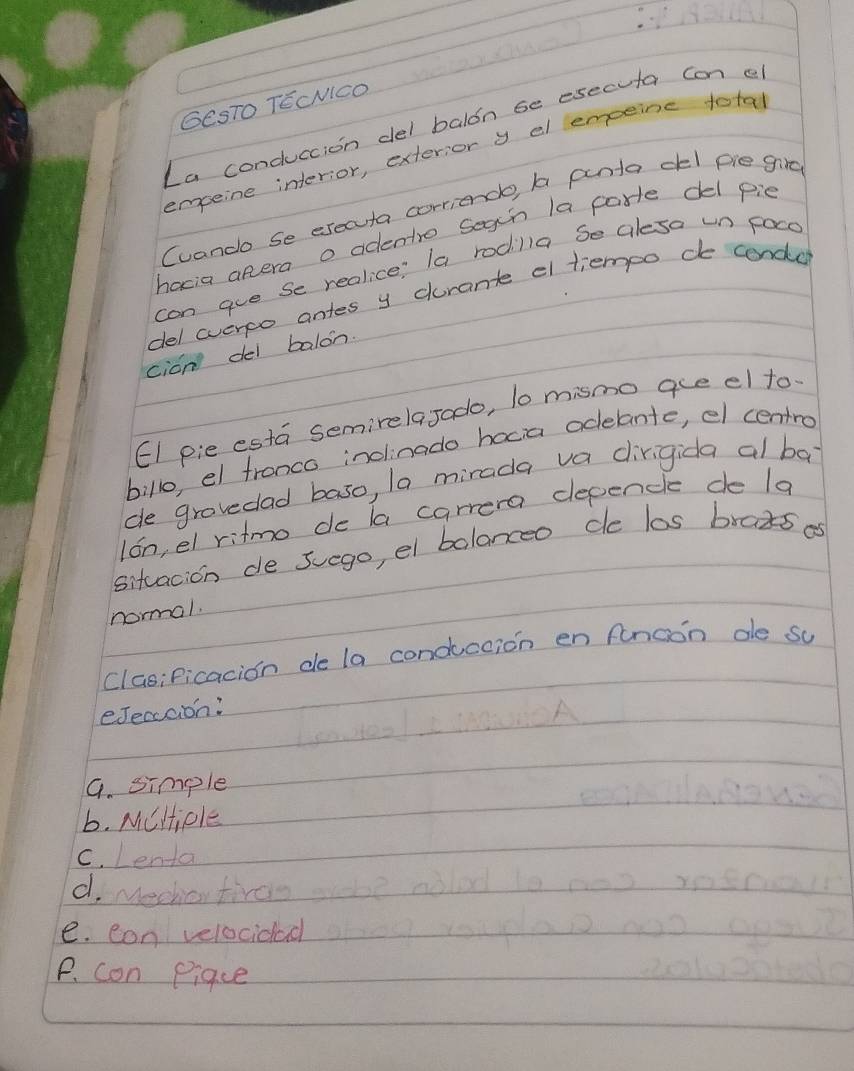 GESTO TÉCNICO
La conducción del balón se esecuta con el
empeine interior, exterior y el empeine total
Cuando se ejecuta corriendo, la punta del pie gira
hacia afuera o adentro según la parte del pie
con que se realice; la rodilla se alesa un poco
del cuerpo antes y durante el tiempo de conduc
ción del balón.
El pie está semirelajado, lo mismo que el to-
billo, el tronco inclinado hacia adelante, el centro
de gravedad baso, la mirada va dirigida al ba-
lón, el ritmo de la carrera depende de la
situación de Juego, el balanceo de los brazos es
normal.
Clasificación de la conducción en función de su
eJecución:
a. simple
b. Múltiple
c. Lenta
d.
e. con velocidad
f. con pique